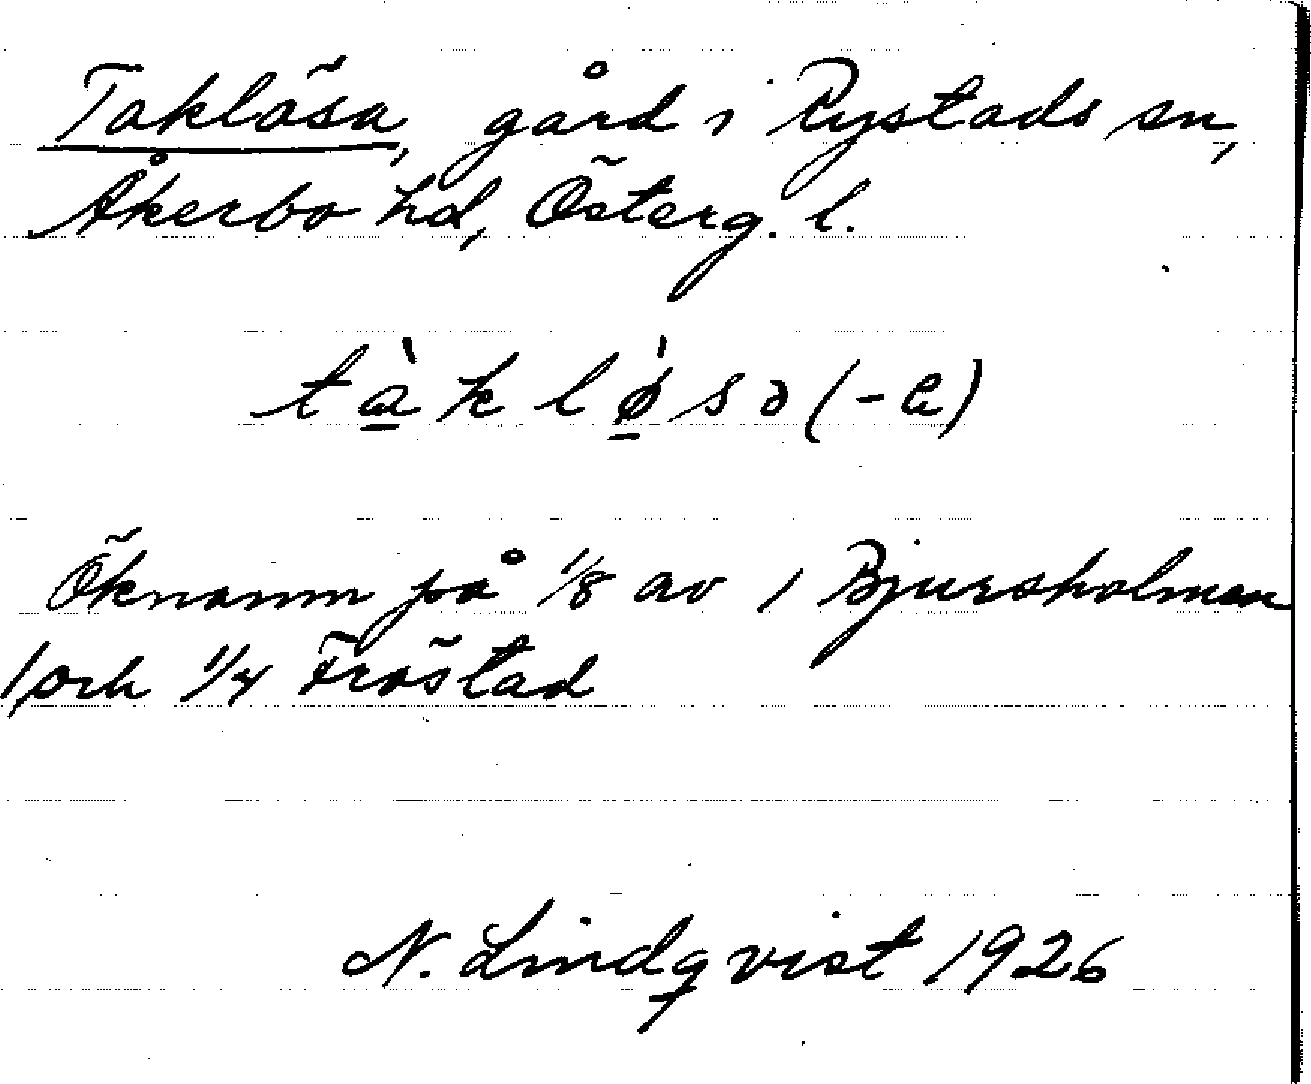 Taklösa, gård i Rystads sn,
Åkerbo hd, Österg. l.
tàkløsə (-a)
Öknamn på 1/8 av 1 Bjursholmen
och 1/4 Fröstad
N. Lindqvist 1926